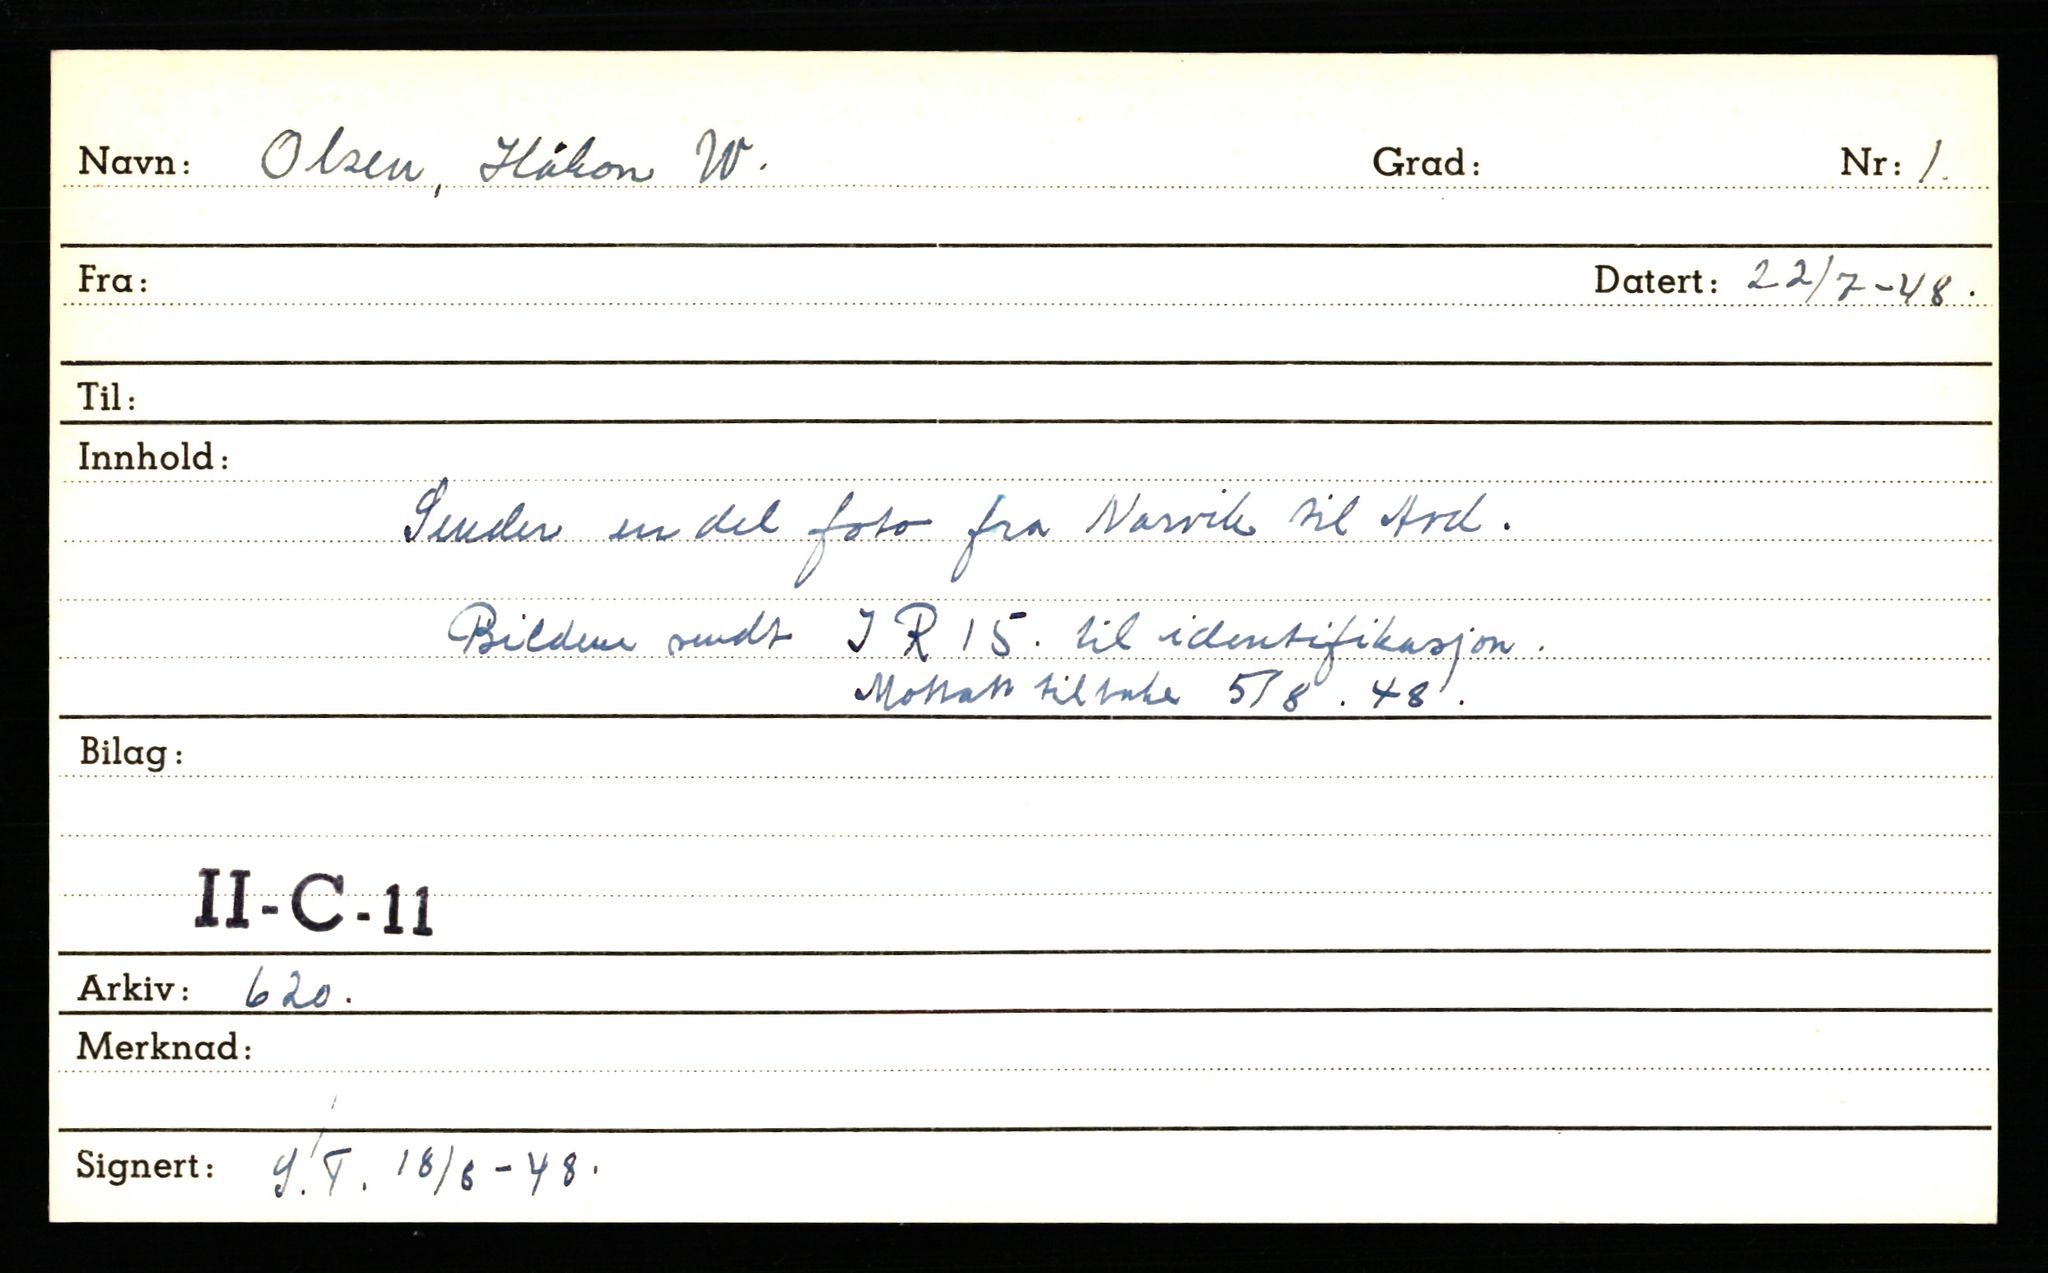 Navn: Olsen, Håkon W. Grad: Nr: 1.
Fra: Datert: 22/7-48.
Til:
Innhold:
Sender en del foto fra Narvik til Avd.
Bildene sendt I R 15. til identifikasjon.
Mottatt tilbake 5/8. 48.
Bilag:
II-C-11
Arkiv: 620.
Merknad:
Signert: S.T. 18/8-48.